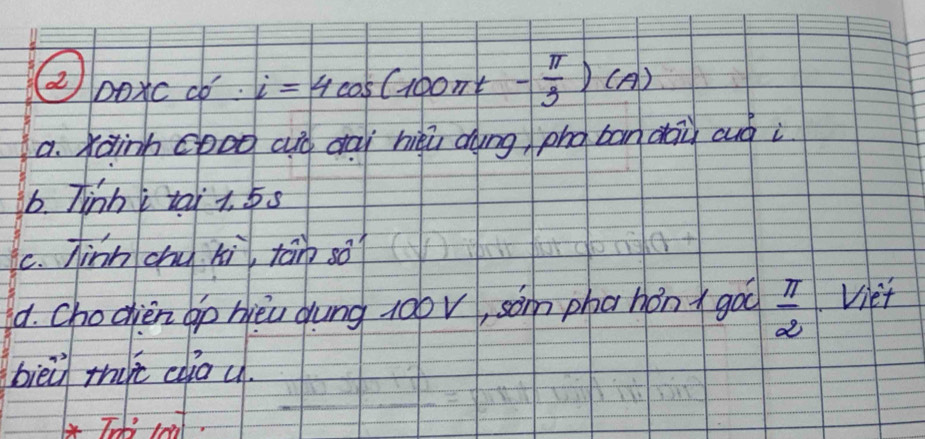 ② DĐXC có : i = 4 cos(100πt - π/3) (A)
a. Xđịnh CĐDĐ cực đại hiệu dụng, pha ban đầu của i
b. Tính i tại 1,5s
c. Tính chu kì, tần số
d. Cho điện áp hiệu dụng 100V, sớm pha hơn 1 góc π/2. Viết
biểu thức của u.
* Trả lời